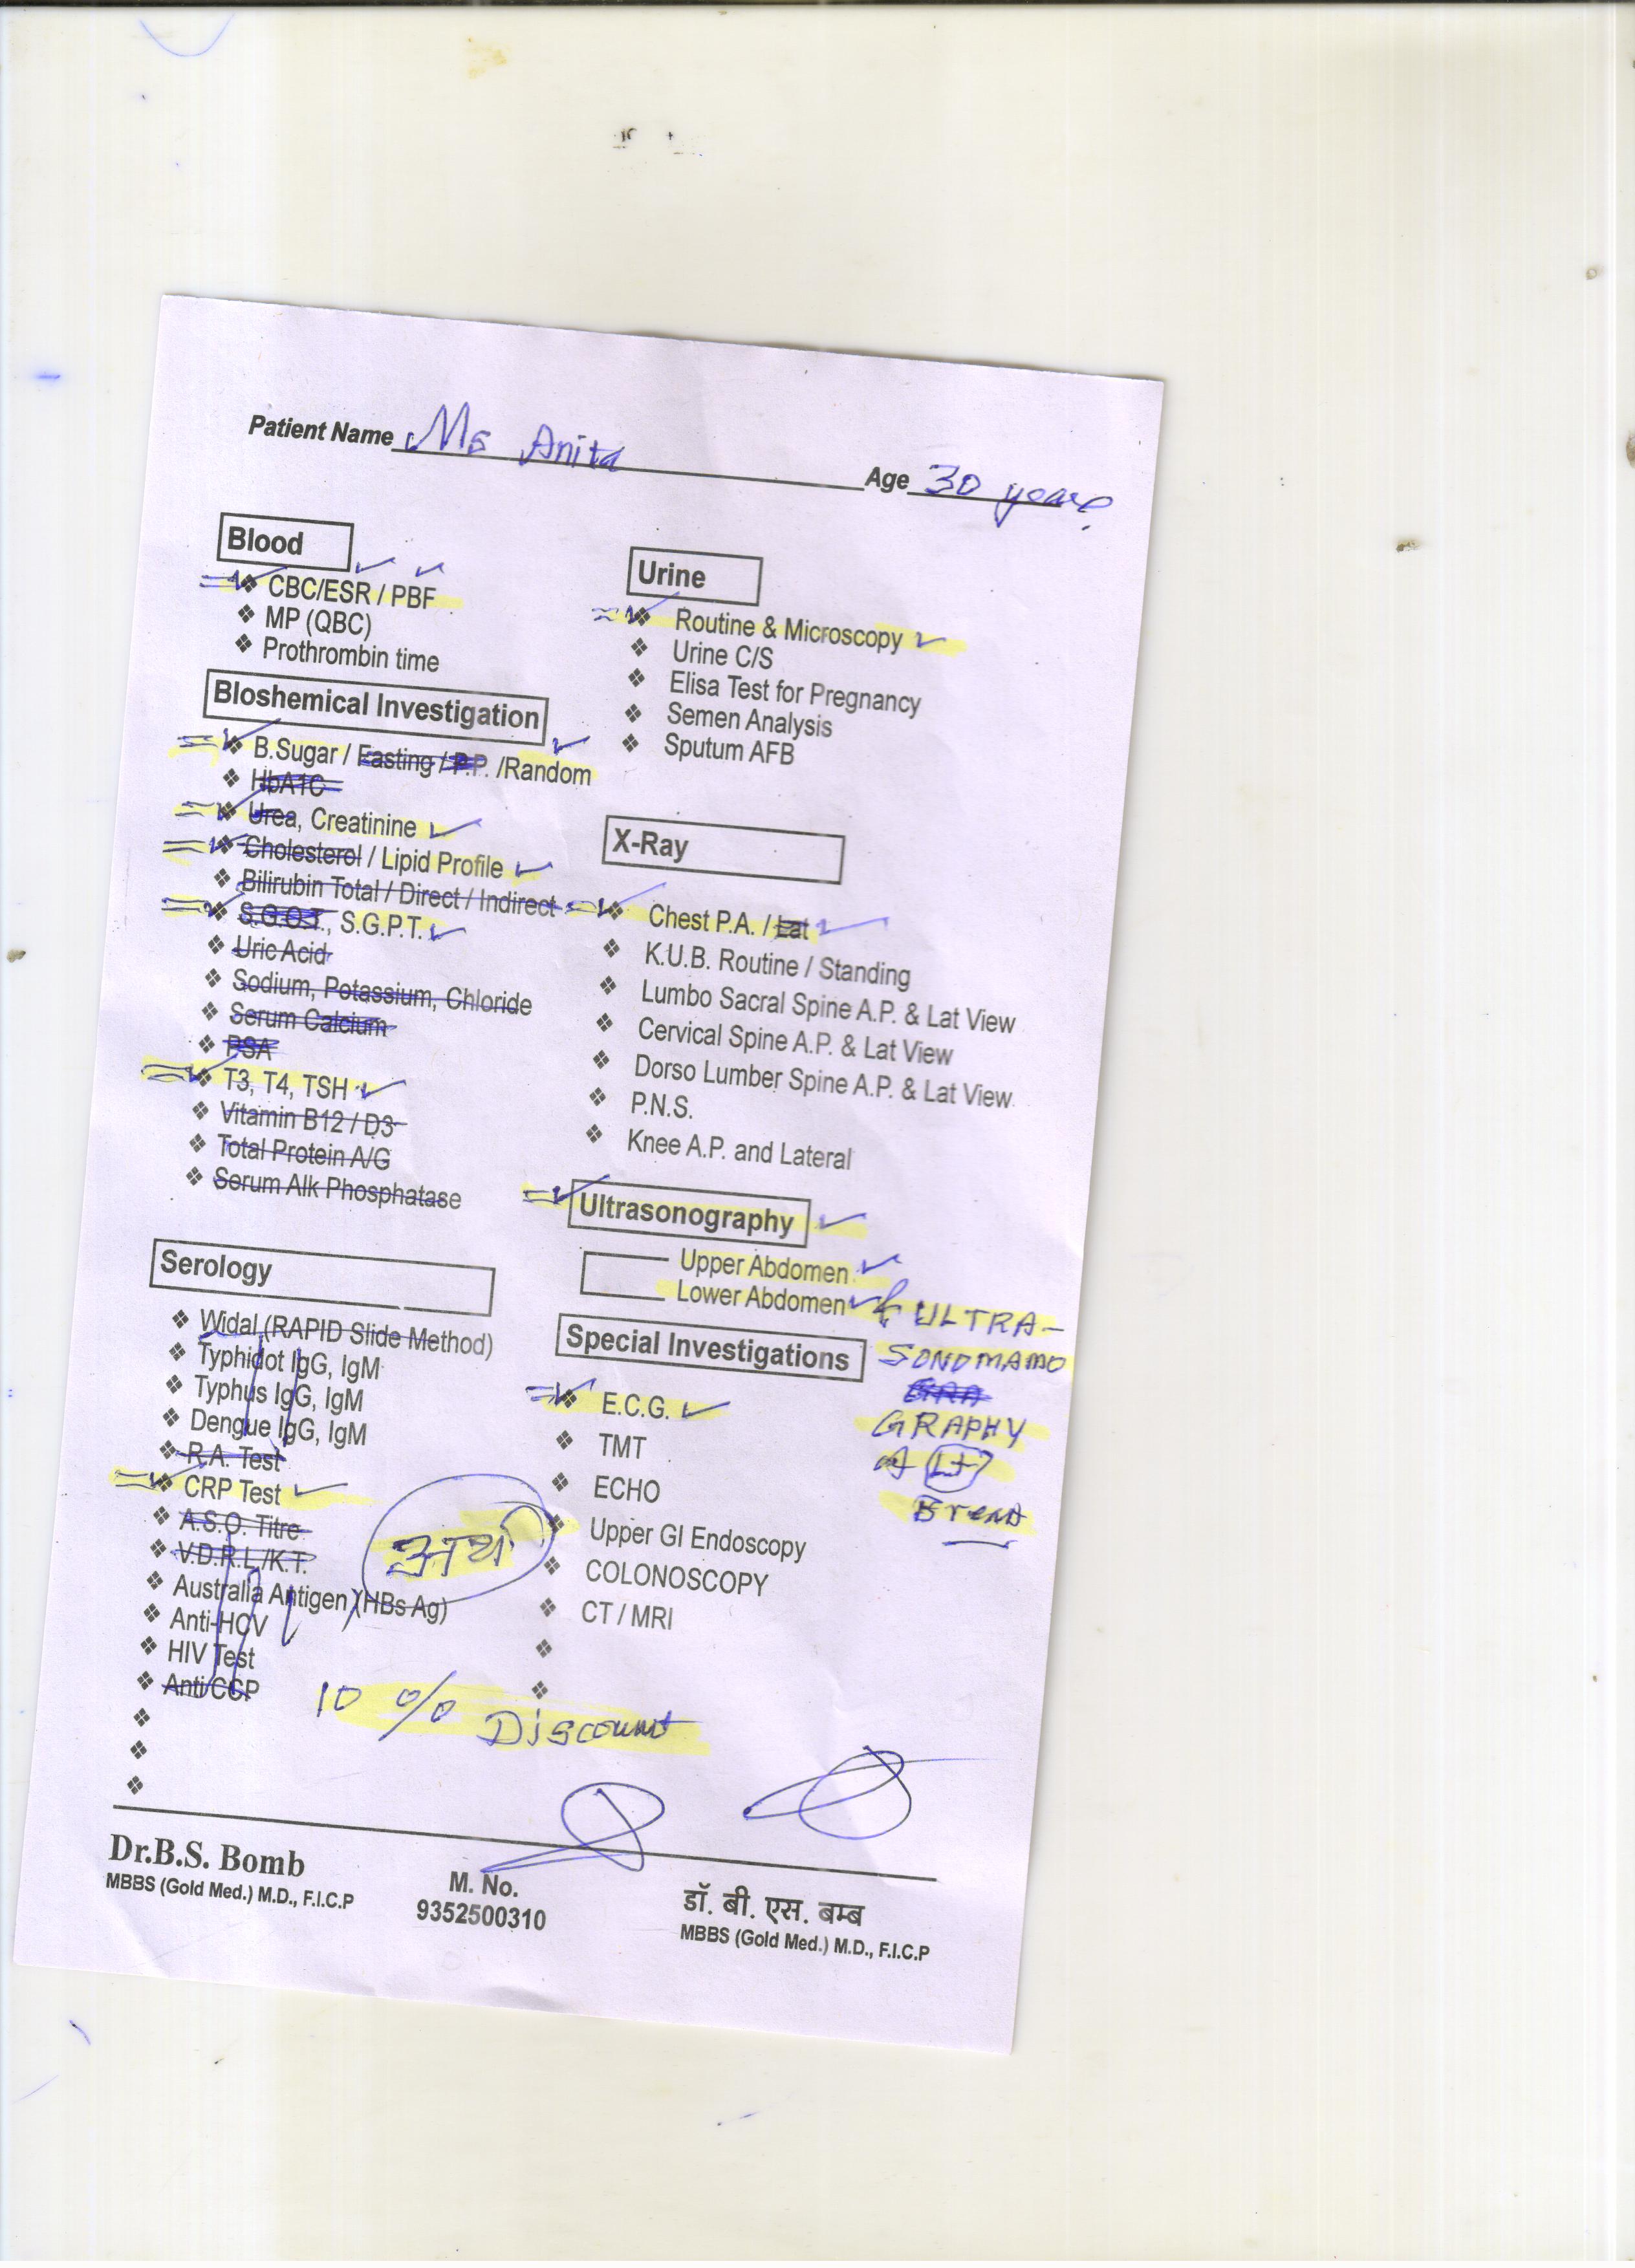 Patient Name Ms Anita
Age 30 years
Blood
CBC/ESR / PBF
MP (QBC)
Prothrombin time
Bloshemical Investigation
B.Sugar / Fasting / P.P. /Random
HbA1C
Urea, Creatinine
Cholesterol / Lipid Profile
Bilirubin Total / Direct / Indirect
S.G.O.T., S.G.P.T.
Uric Acid
Sodium, Potassium, Chloride
Serum Calcium
PSA
T3, T4, TSH
Vitamin B12 / D3
Total Protein A/G
Serum Alk Phosphatase
Serology
Widal (RAPID Slide Method)
Typhidot IgG, IgM
Typhus IgG, IgM
Dengue IgG, IgM
R.A. Test
CRP Test
A.S.O. Titre
V.D.R.L./K.T.
Australia Antigen (HBs Ag)
Anti-HCV
HIV Test
Anti CCP
Urine
Routine & Microscopy
Urine C/S
Elisa Test for Pregnancy
Semen Analysis
Sputum AFB
X-Ray
Chest P.A. / Lat
K.U.B. Routine / Standing
Lumbo Sacral Spine A.P. & Lat View
Cervical Spine A.P. & Lat View
Dorso Lumber Spine A.P. & Lat View
P.N.S.
Knee A.P. and Lateral
Ultrasonography
Upper Abdomen
Lower Abdomen
& ULTRA-
SONOMAMO
GRAPHY
of Lt
Special Investigations
E.C.G.
TMT
ECHO
Upper GI Endoscopy
COLONOSCOPY
CT / MRI
10 % Discount
Dr.B.S. Bomb
MBBS (Gold Med.) M.D., F.I.C.P
M. No.
9352500310
डॉ. बी. एस. बम्ब
MBBS (Gold Med.) M.D., F.I.C.P